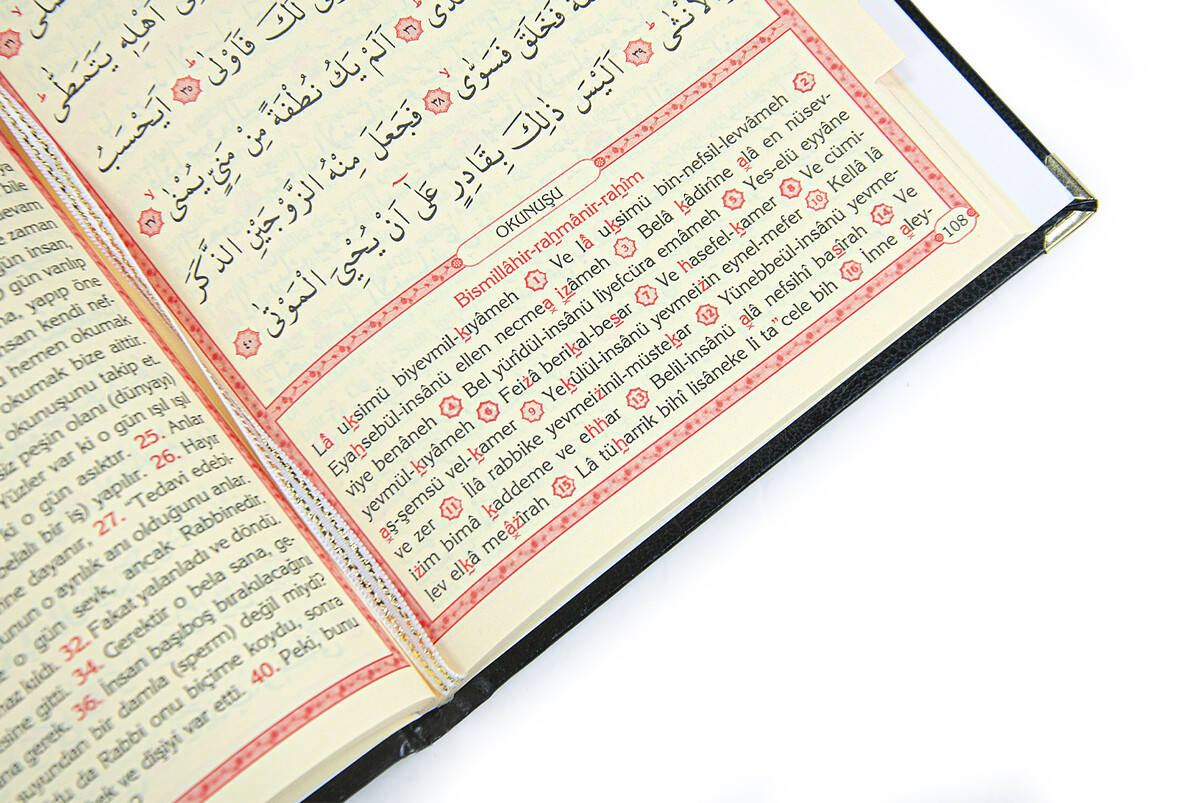 اَهْلِه۪ يَتَمَطّٰى
لَكَ فَاَوْلٰى ٣٥ اَيَحْسَبُ
٣٦ اَلَمْ يَكُ نُطْفَةً مِنْ مَنِيٍّ يُمْنٰى ٣٧
فَخَلَقَ فَسَوّٰى ٣٨ فَجَعَلَ مِنْهُ الزَّوْجَيْنِ الذَّكَرَ
الْاُنْثٰى ٣٩ اَلَيْسَ ذٰلِكَ بِقَادِرٍ عَلٰٓى اَنْ يُحْيِيَ الْمَوْتٰى ٤٠
OKUNUŞU
Bismillâhir-rahmânir-rahîm
Lâ uksimü biyevmil-kıyâmeh 1 Ve lâ uksimü bin-nefsil-levvâmeh 2
Eyahsebül-insânü ellen necmea ızâmeh 3 Belâ kâdirîne alâ en nüsev-
viye benâneh 4 Bel yürîdül-insânü liyefcüra emâmeh 5 Yes-elü eyyâne
yevmül-kıyâmeh 6 Feizâ berikal-besar 7 Ve hasefel-kamer 8 Ve cümi-
aş-şemsü vel-kamer 9 Yekûlül-insânü yevmeizin eynel-mefer 10 Kellâ lâ
ve zer 11 İlâ rabbike yevmeizinil-müstekar 12 Yünebbeül-insânü yevme-
izim bimâ kaddeme ve ehhar 13 Belil-insânü alâ nefsihî basîrah 14 Ve
lev elkâ meâzîrah 15 Lâ tüharrik bihî lisâneke li ta"cele bih 16 İnne aley-
108
bile
devam
zaman
gün insan,
gün varılıp
yapıp öne
insan kendi nef-
hemen okumak
okumak bize aittir.
okunuşunu takip et.
siz peşin olanı (dünyayı)
Yüzler var ki o gün ışıl ışıl
ki o gün asıktır. 25. Anlar
belalı bir iş) yapılır. 26. Hayır
dayanır, 27. "Tedavi edebi-
o ayrılık anı olduğunu anlar.
o gün sevk, ancak Rabbinedir.
kıldı. 32. Fakat yalanladı ve döndü.
gitti. 34. Gerektir o bela sana, ge-
gerek. 36. İnsan başıboş bırakılacağını
suyundan bir damla (sperm) değil miydi?
da Rabbi onu biçime koydu, sonra
ve dişiyi var etti. 40. Peki, bunu